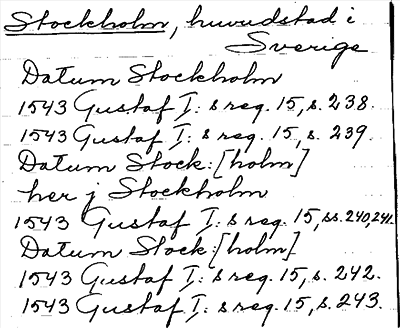 Stockholm, huvudstad i
Sverige
Datum Stockholm
1543 Gustaf I: s reg. 15, s. 238.
1543 Gustaf I: s reg. 15, s. 239.
Datum Stock:[holm]
her j Stockholm
1543 Gustaf I: s reg. 15, ss. 240, 241.
Datum Stock:[holm]
1543 Gustaf I: s reg. 15, s. 242.
1543 Gustaf I: s reg. 15, s. 243.